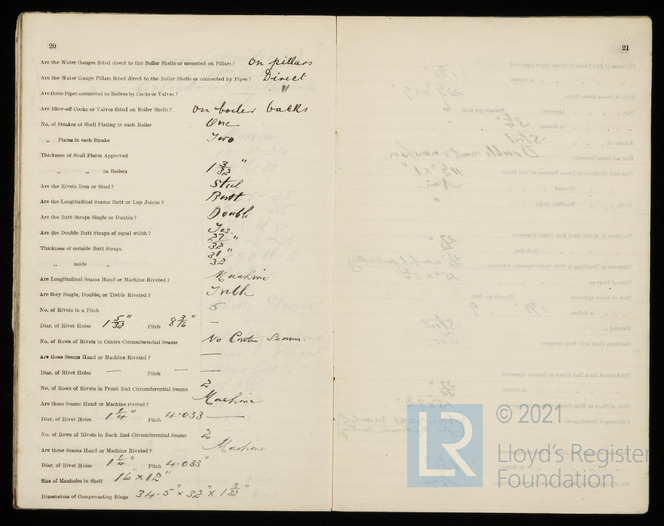 20
Are the Water Gauges fitted direct to the Boiler Shells or mounted on Pillars? On pillars
Are the Water Gauge Pillars fitted direct to the Boiler Shells or connected by Pipes? Direct
Are these Pipes connected to Boilers by Cocks or Valves? "
Are Blow-off Cocks or Valves fitted on Boiler Shells? On boiler backs
No. of Strakes of Shell Plating in each Boiler One
„ Plates in each Strake Two
Thickness of Shell Plates Approved
„ „ in Boilers 1 3/32"
Are the Rivets Iron or Steel? Steel
Are the Longitudinal Seams Butt or Lap Joints? Butt
Are the Butt Straps Single or Double? Double
Are the Double Butt Straps of equal width? Yes
Thickness of outside Butt Straps 27/32"
„ inside „ 31/32"
Are Longitudinal Seams Hand or Machine Riveted? Machine
Are they Single, Double, or Treble Riveted? Treble
No. of Rivets in a Pitch 5
Diar. of Rivet Holes 1 5/32" Pitch 8 3/16" —
No. of Rows of Rivets in Centre Circumferential Seams No Centre Seams
Are these Seams Hand or Machine Riveted? —
Diar. of Rivet Holes — Pitch — —
No. of Rows of Rivets in Front End Circumferential Seams 2
Are these Seams Hand or Machine riveted? Machine
Diar. of Rivet Holes 1 1/4" Pitch 4.033 —
No. of Rows of Rivets in Back End Circumferential Seams 2
Are these Seams Hand or Machine Riveted? Machine
Diar. of Rivet Holes 1 1/4" Pitch 4.033"
Size of Manholes in Shell 16" x 12"
Dimensions of Compensating Rings 34.5" x 32" x 1 3/32"
21
LR
© 2021
Lloyd's Register
Foundation